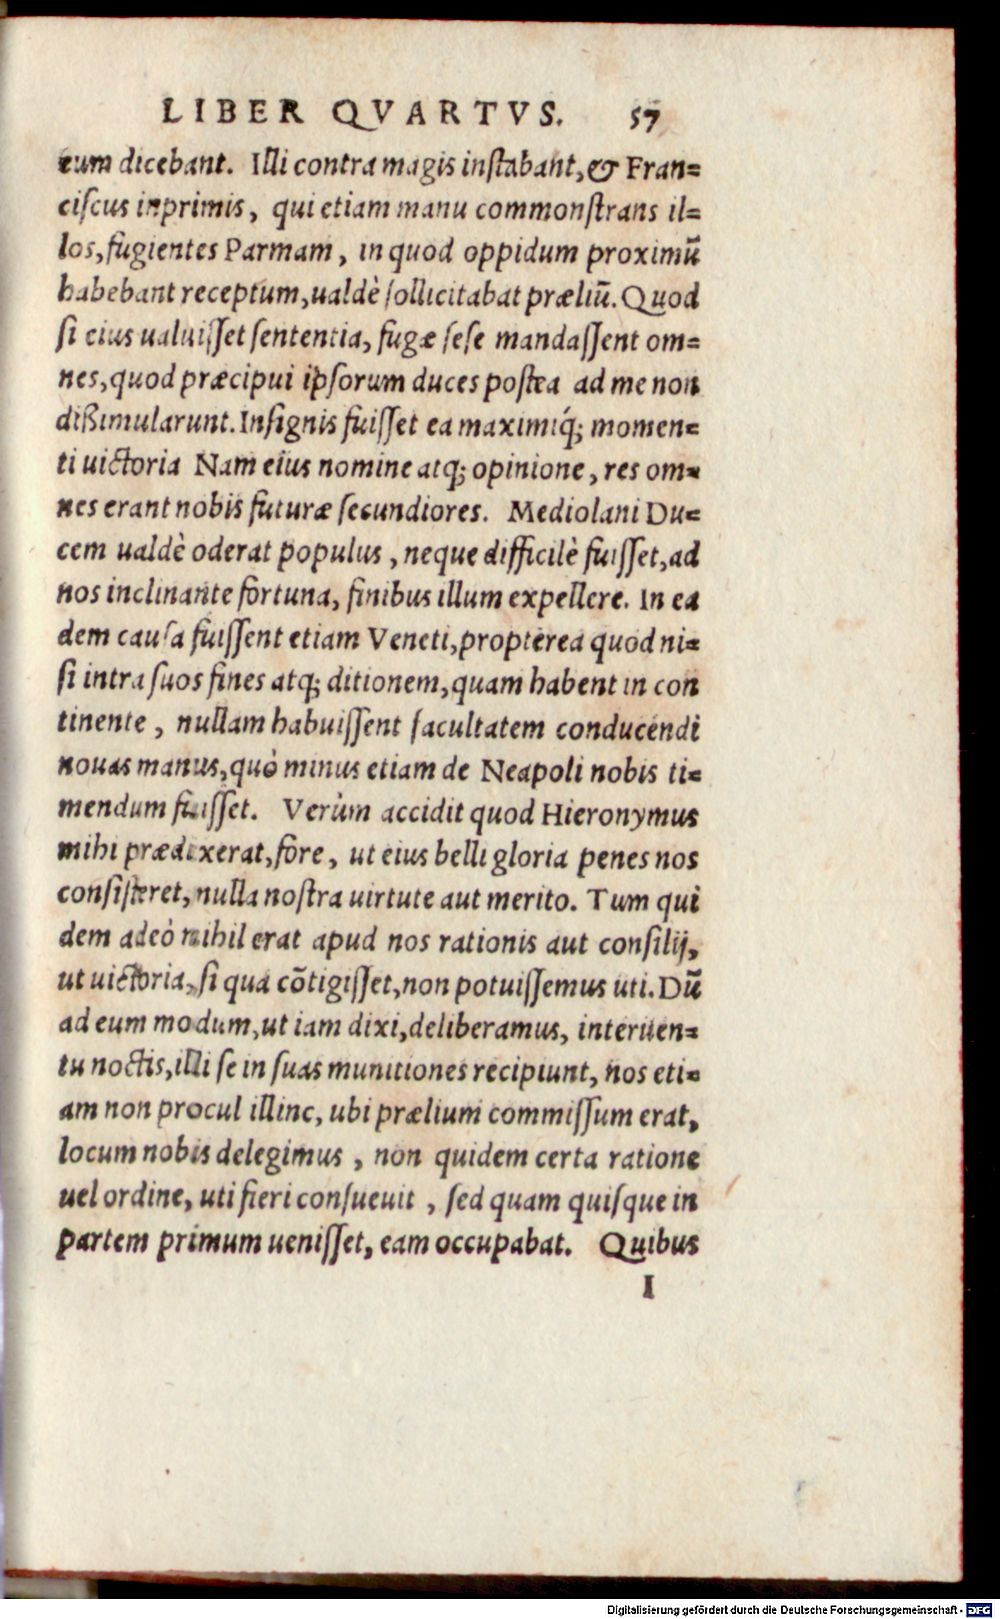 LIBER QVARTVS. 57
eum dicebant. Illi contra magis instabant, & Fran=
ciscus inprimis, qui etiam manu commonstrans il=
los, fugientes Parmam, in quod oppidum proximũ
habebant receptum, ualdè sollicitabat præliũ. Quod
si eius ualuisset sententia, fugæ sese mandassent om=
nes, quod præcipui ipsorum duces postea ad me non
dißimularunt. Insignis fuisset ea maximiq́; momen=
ti uictoria Nam eius nomine atq; opinione, res om=
nes erant nobis futuræ secundiores. Mediolani Du=
cem ualdè oderat populus, neque difficilè fuisset, ad
nos inclinante fortuna, finibus illum expellere. In ea
dem causa fuissent etiam Veneti, propterea quod ni=
si intra suos fines atq; ditionem, quam habent in con
tinente, nullam habuissent facultatem conducendi
nouas manus, quò minus etiam de Neapoli nobis ti=
mendum fuisset. Verùm accidit quod Hieronymus
mihi prædixerat, fore, ut eius belli gloria penes nos
consisteret, nulla nostra uirtute aut merito. Tum qui
dem adeò nihil erat apud nos rationis aut consilij,
ut uictoria, si qua cõtigisset, non potuissemus uti. Dũ
ad eum modum, ut iam dixi, deliberamus, interuen=
tu noctis, illi se in suas munitiones recipiunt, nos eti=
am non procul illinc, ubi prælium commissum erat,
locum nobis delegimus, non quidem certa ratione
uel ordine, uti fieri consueuit, sed quam quisque in
partem primum uenisset, eam occupabat. Quibus
I
Digitalisierung gefördert durch die Deutsche Forschungsgemeinschaft - DFG